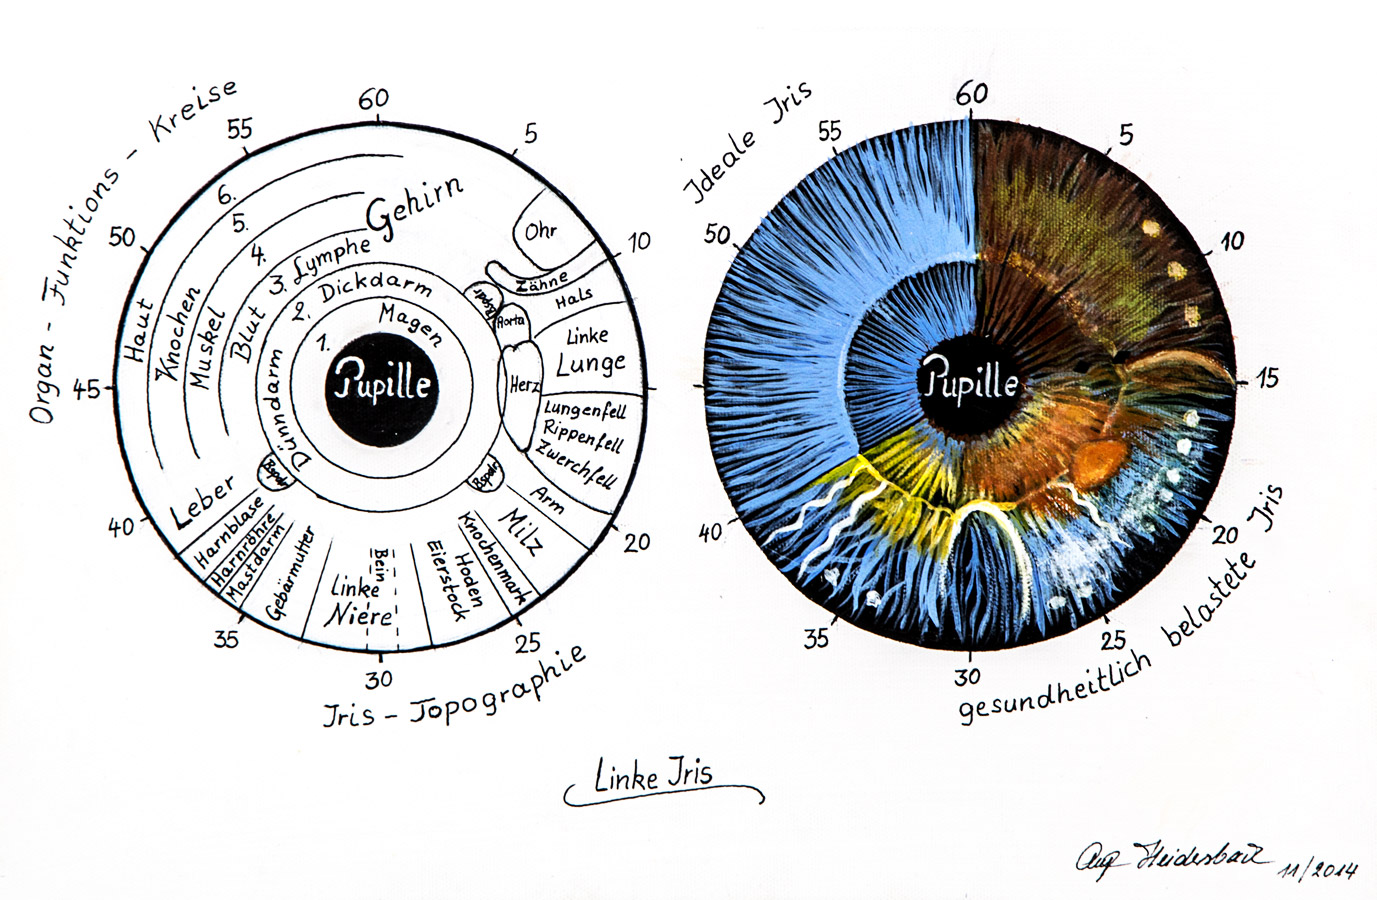 Organ - Funktions - Kreise
60
55
5
50
10
45
40
20
35
25
30
6.
5.
4.
3.
2.
1.
Gehirn
Lymphe
Dickdarm
Magen
Pupille
Haut
Knochen
Muskel
Blut
Dünndarm
Ohr
Zähne
Hals
Aorta
Linke
Lunge
Herz
Lungenfell
Rippenfell
Zwerchfell
Arm
Milz
Knochenmark
Hoden
Eierstock
Bein
Linke
Niere
Gebärmutter
Mastdarm
Harnröhre
Harnblase
Leber
Iris - Topographie
Ideale Iris
60
55
5
50
10
15
40
20
35
25
30
Pupille
gesundheitlich belastete Iris
Linke Iris
11/2014